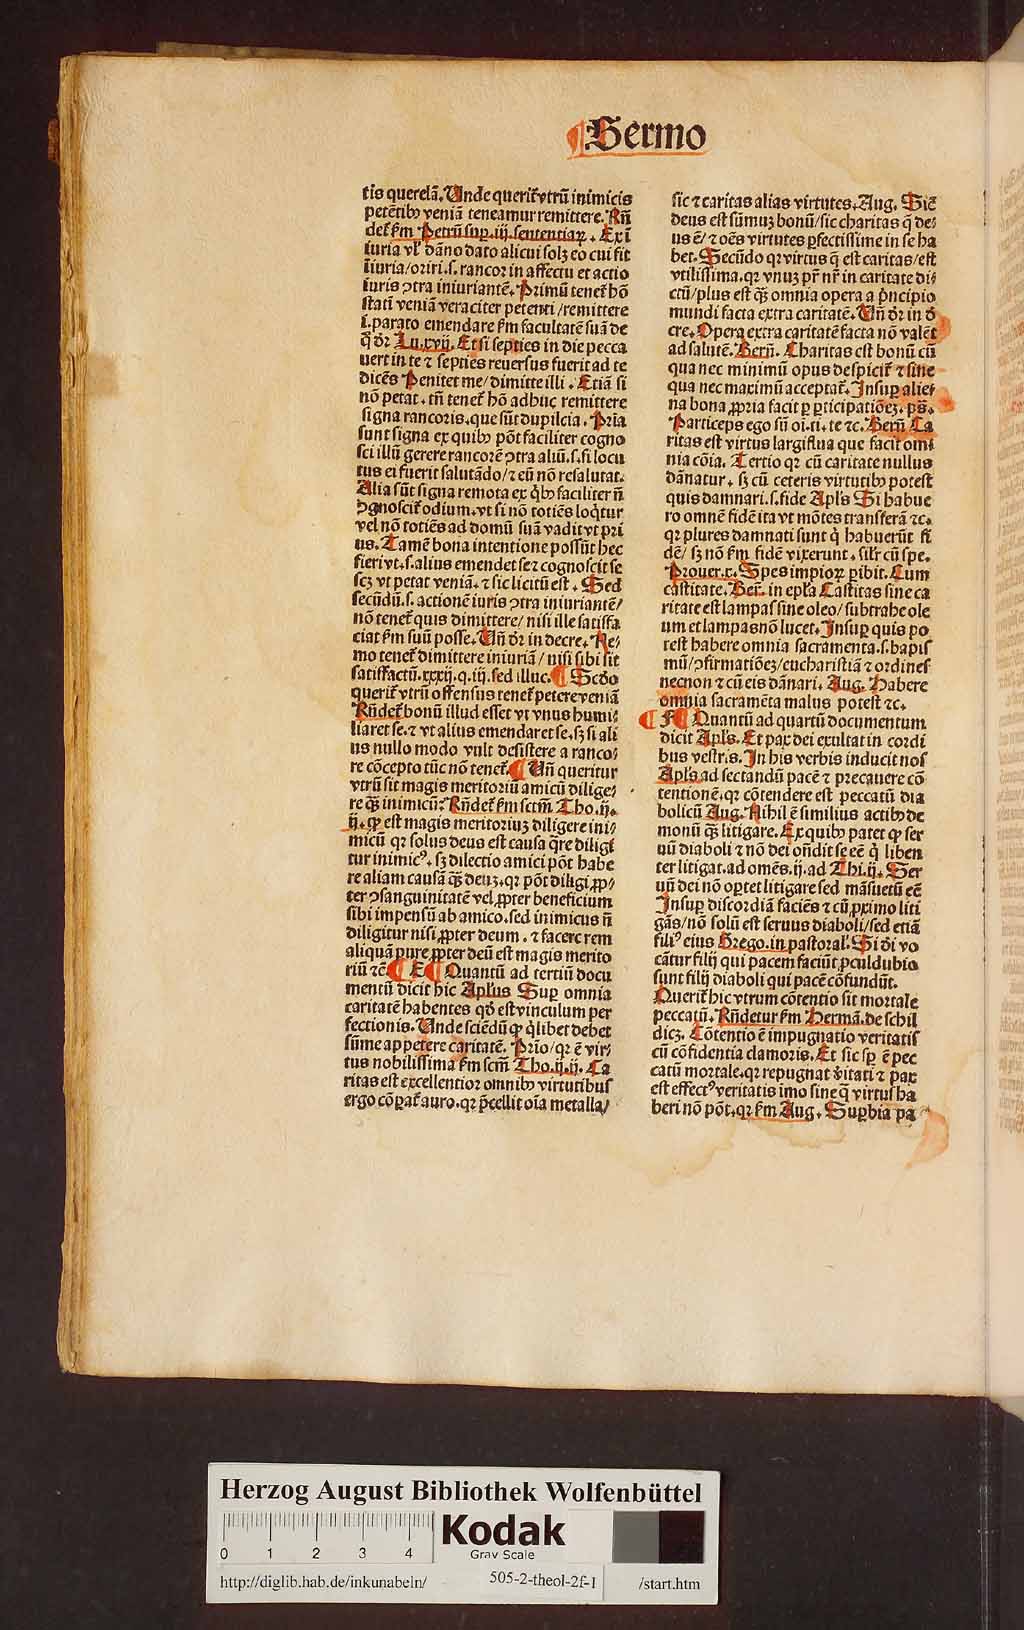 Sermo
tis querelā. Unde querit̃ vtrū inimicis
petētibꝫ veniā teneamur remittere. Rñ
det̃ ẜm Petrū sup̱. iij. sententiaꝝ. Ex ī
iuria vl̕ dāno dato alicui solꝫ eo cui fit
iniuria/oriri. s. rancor in affectu et actio
iuris ꝯtra iniuriantē. Primū tenet̃ hō
statī veniā veraciter petenti/remittere
i. parato emendare ẜm facultatē suā de
q̄ dr̄ Lu. xvij. Et si septies in die pecca
uerit in te ⁊ septies reuersus fuerit ad te
dicēs Penitet me/dimitte illi. Etiā si
nō petat. tn̄ tenet̃ hō adhuc remittere
signa rancoris. que sūt dupilcia. Pria
sunt signa ex quibꝫ pōt faciliter cogno
sci illū gerere rancorē ꝯtra aliū. s. si locu
tus ei fuerit salutādo/⁊ eū nō resalutat.
Alia sūt signa remota ex q̇bꝫ faciliter ñ
ꝯgnoscit̃ odium. vt si nō totiēs loq̇tur
vel nō totiēs ad domū suā vadit vt pri
us. Tamē bona intentione possūt hec
fieri vt. s. alius emendet se ⁊ cognoscit se
scꝫ vt petat veniā. ⁊ sic licitū est. Sed
secūdū. s. actionē iuris ꝯtra iniuriantē/
nō tenet̃ quis dimittere/nisi ille satisfa
ciat ẜm suū posse. Un̄ dr̄ in decre. Ne-
mo tenet̃ dimittere iniuriā/nisi sibi sit
satisfactū. xxxij. q. iij. sed illuc. ¶ Scd̄o
querit̃ vtrū offensus tenet̃ petere veniā
Rñdet̃ bonū illud esset vt vnus humi-
liaret se. ⁊ vt alius emendaret se. sꝫ si ali
us nullo modo vult desistere a ranco-
re cōcepto tūc nō tenet̃. ¶ Un̄ queritur
vtrū sit magis meritoriū amicū dilige-
re q̄ꝫ inimicū? Rñdet̃ ẜm sctm̄ Tho. ij.
ij. ꝙ est magis meritoriuꝫ diligere ini-
micū qꝛ solus deus est causa q̄re diligi
tur inimicꝰ. sꝫ dilectio amici pōt habe
re aliam causā q̄ꝫ deuꝫ. qꝛ pōt diligi ꝓp-
ter ꝯsanguinitatē vel ꝓpter beneficium
sibi impensū ab amico. sed inimicus ñ
diligitur nisi ꝓpter deum. ⁊ facere rem
aliquā pure ꝓpter deū est magis merito
riū ⁊c̄ ¶ E ¶ Quantū ad tertiū docu
mentū dicit hic Apl̕us Sup̱ omnia
caritatē habentes qd̄ est vinculum per
fectionis. Unde sciēdū ꝙ q̇libet debet
sūme appetere caritatē. Prīo/qꝛ ē vir-
tus nobilissima ẜm scm̄ Tho. ij. ij. Ca
ritas est excellentior omnibꝫ virtutibus
ergo cōꝑat̃ auro. qꝛ p̄cellit oīa metalla/
sic ⁊ caritas alias virtutes. Aug. Sic̄
deus est sūmuꝫ bonū/sic charitas q̄ de-
us ē/⁊ oēs virtutes ꝑfectissime in se ha
bet. Secūdo qꝛ virtus q̄ est caritas/est
vtilissima. qꝛ vnuꝫ pr̄ nr̄ in caritate di-
ctū/plus est q̄ꝫ omnia opera a p̄ncipio
mundi facta extra caritatē. Un̄ dr̄ in d̄
cre. Opera extra caritatē facta nō valēt
ad salutē. Bern̄. Charitas est bonū cū
qua nec minimū opus despicit̃ ⁊ sine
qua nec maximū acceptat̃. Insup̱ alie-
na bona ꝓpria facit ꝑ ꝑticipatiōeꝫ. ps̄.
Particeps ego sū oī. ti. te ⁊c. Bern̄ Ca
ritas est virtus largiflua que facit om-
nia cōia. Tertio qꝛ cū caritate nullus
dānatur. sꝫ cū ceteris virtutibꝫ potest
quis damnari. s. fide Apl̕s Si habue
ro omnē fidē ita vt mōtes transferā ⁊c.
qꝛ plures damnati sunt q̇ habuerūt fi
dē/sꝫ nō ẜm fidē vixerunt. sil̕r cū spe.
Prouer. x. Spes impioꝝ ꝑibit. Cum
castitate. Ber. in epl̕a Castitas sine ca
ritate est lampas sine oleo/subtrahe ole
um et lampas nō lucet. Insup̱ quis po
test habere omnia sacramenta. s. bapis
mū/ꝯfirmatiōeꝫ/eucharistiā ⁊ ordines
necnon ⁊ cū eis dānari. Aug. Habere
omnia sacramēta malus potest ⁊c.
¶ F ¶ Quantū ad quartū documentum
dicit Apl̕s. Et pax dei exultat in cordi
bus vestris. In his verbis inducit nos
Apl̕s ad sectandū pacē ⁊ precauere cō
tentionē. qꝛ cōtendere est peccatū dia
bolicū Aug. Nihil ē similius actibꝫ de
monū q̄ꝫ litigare. Ex quibꝫ patet ꝙ ser
uū diaboli ⁊ nō dei on̄dit se eē q̇ liben
ter litigat. ad omēs. ij. ad Thi. ij. Ser
uū dei nō oꝑtet litigare sed māsuetū eē
Insup̱ discordiā faciēs ⁊ cū ꝓximo liti
gās/nō solū est seruus diaboli/sed etiā
filiꝰ eius Grego. in pastoral̕. Si d̓i vo
cātur filij qui pacem faciūt ꝓculdubio
sunt filij diaboli qui pacē cōfundūt.
Querit̃ hic vtrum cōtentio sit mortale
peccatū. Rñdetur ẜm Hermā. de schil
dicꝫ. Cōtentio ē impugnatio veritatis
cū cōfidentia clamoris. Et sic sp̱ ē pec
catū mortale. qꝛ repugnat v̓itati ⁊ pax
est effectꝰ veritatis imo sine q̄ virtus ha
beri nō pōt. qꝛ ẜm Aug. Sup̱bia pa
Herzog August Bibliothek Wolfenbüttel
0 1 2 3 4
Kodak
Gray Scale
http://diglib.hab.de/inkunabeln/ 505-2-theol-2f-1 /start.htm